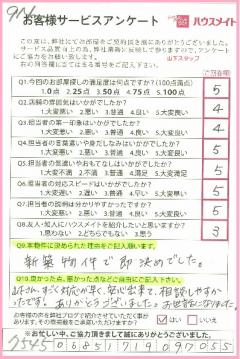 9N
お客様サービスアンケート
ハウスメイト
この度は、弊社にてお部屋をご契約頂き誠にありがとうございました。
山下スタッフ
Q1.今回のお部屋探しの満足度は何点ですか?(100点満点)
1.0点 2.25点 3.50点 4.75点 5.100点
5
Q2.店舗の雰囲気はいかがでしたか?
1.大変悪い 2.悪い 3.普通 4.良い 5.大変良い
4
Q3.担当者の第一印象はいかがでしたか?
1.大変悪い 2.悪い 3.普通 4.良い 5.大変良い
4
Q4.担当者の言葉遣いや身だしなみはいかがでしたか?
1.大変悪い 2.悪い 3.普通 4.良い 5.大変良い
5
Q5.担当者の気遣いやおもてなしはいかがでしたか?
1.大変不満 2.不満 3.普通 4.満足 5.大変満足
5
Q6.担当者の対応スピードはいかがでしたか?
1.大変遅い 2.遅い 3.普通 4.早い 5.大変早い
5
Q7.担当者の説明は分かりやすかったですか?
1.大変悪い 2.悪い 3.普通 4.良い 5.大変良い
5
Q8.友人・知人にハウスメイトを紹介したいと思いますか?
1.思わない 2.どちらでもない 3.思う
3
Q9.本物件に決められた理由をご記入願います。
新築物件で即決めでした。
Q10.良かった点、悪かった点などご自由にご記入下さい。
山下さん、すごく対応の早く安心出来て、相談しやすかったです!
ありがとうございました。お世話になりました。
お客様の声を弊社ブログ紹介させていただいております。
はい
いいえ
お忙しい中、ご協力頂きまして誠にありがとうございました。